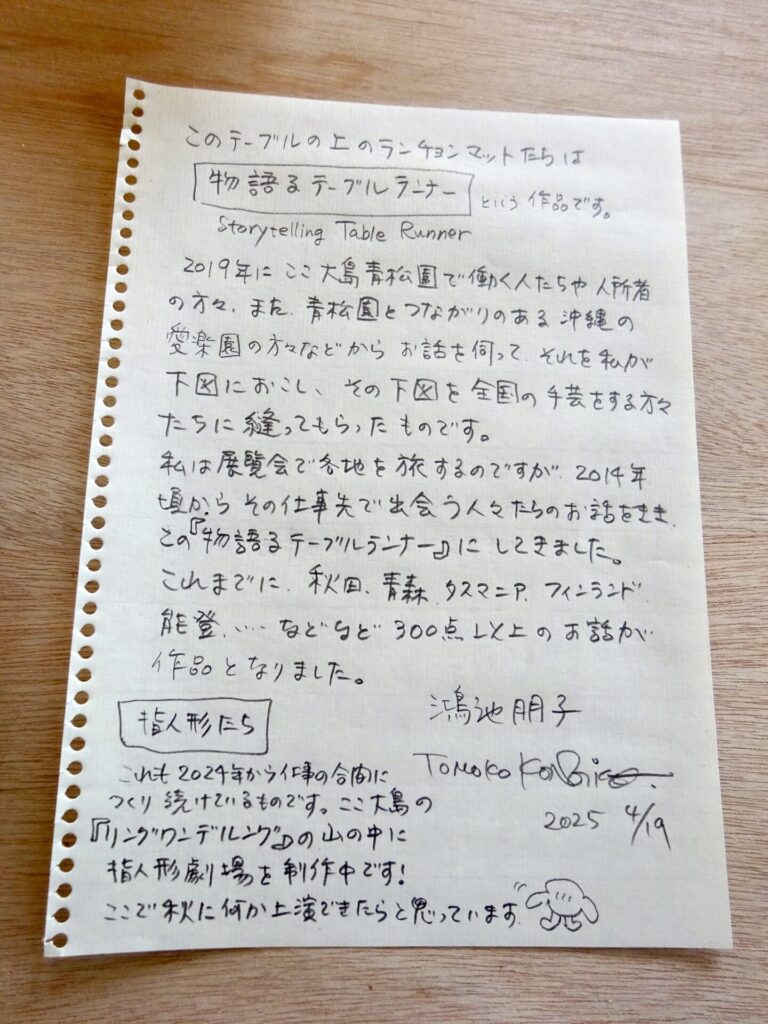 このテーブルの上のランチョンマットたちは
物語るテーブルランナー という作品です。
Storytelling Table Runner
2019年にここ大島青松園で働く人たちや入所者
の方々、また、青松園とつながりのある沖縄の
愛楽園の方々などから お話を伺って、それを私が
下図におこし、その下図を全国の手芸をする方々
たちに縫ってもらったものです。
私は展覧会で各地を旅するのですが、2014年
頃からその仕事先で出会う人々たちのお話をきき、
この『物語るテーブルランナー』にしてきました。
これまでに、秋田、青森、タスマニア、フィンランド、
能登、… などなど 300点以上のお話が
作品となりました。
鴻池朋子
TOMOKO KONOIKE
2025 4/19
指人形たち
これも2024年から仕事の合間に
つくり続けているものです。ここ大島の
『リングワンデルング』の山の中に
指人形劇場を制作中です!
ここで秋に何か上演できたらと思っています